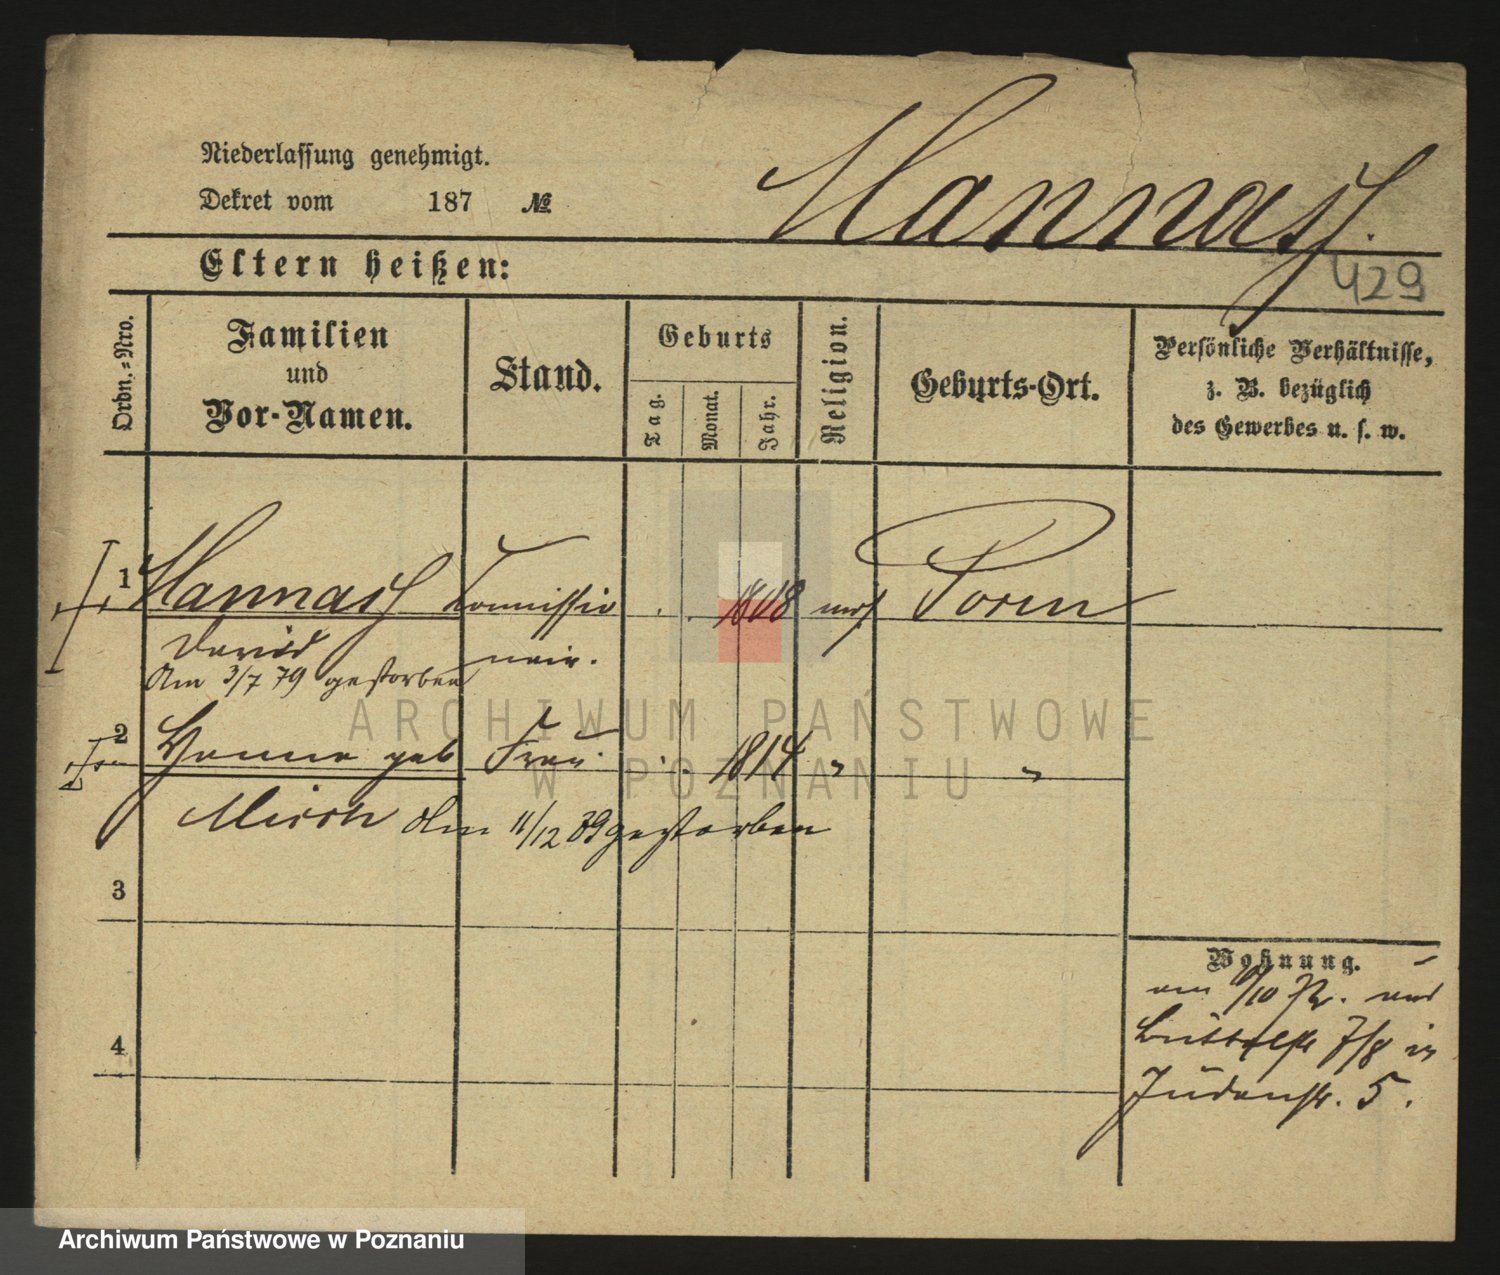 Niederlassung genehmigt.
Dekret vom 187 №
Mannasse.
Eltern heißen:
429
Ordn.-Nro.
Familien
und
Vor-Namen.
Stand.
Geburts
Tag.
Monat.
Jahr.
Religion.
Geburts-Ort.
Persönliche Verhältnisse,
z. B. bezüglich
des Gewerbes u. s. w.
1 Mannasse Commissio 1808 mos Posen
David när.
Am 3/7 79 gestorben
2 Hanna geb Frau 1814 " "
Misch Am 11/12 89 gestorben
3
4
Wohnung.
am /10 von
Büttelstr 7/8 in
Judenstr. 5.
ARCHIWUM PAŃSTWOWE
W POZNANIU
Archiwum Państwowe w Poznaniu